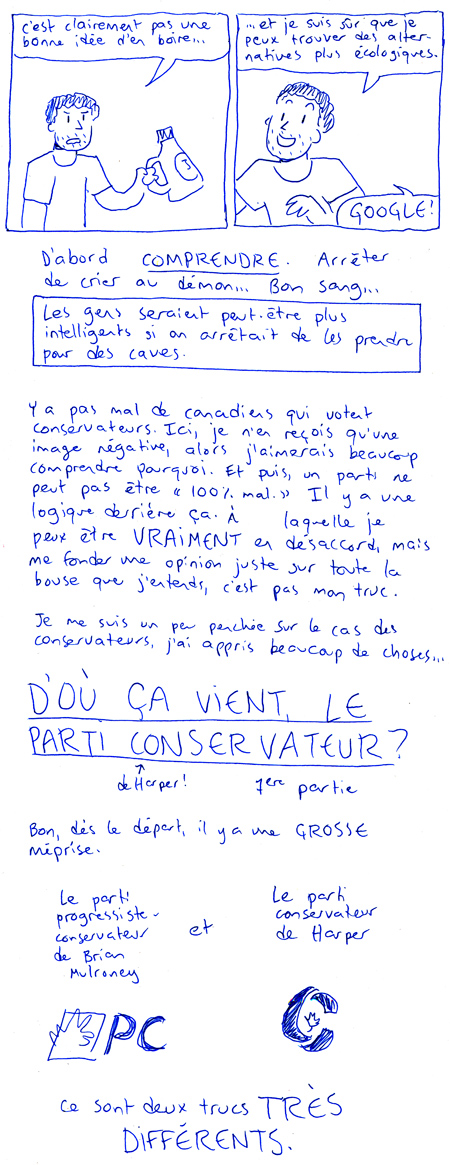 c'est clairement pas une
bonne idée d'en boire...
...et je suis sûr que je
peux trouver des alter-
natives plus écologiques.
GOOGLE!
D'abord COMPRENDRE. Arrêter
de crier au démon... Bon sang...
Les gens seraient peut-être plus
intelligents si on arrêtait de les prendre
pour des caves.
Y a pas mal de canadiens qui votent
conservateurs. Ici, je n'en reçois qu'une
image négative, alors j'aimerais beaucoup
comprendre pourquoi. Et puis, un parti ne
peut pas être « 100% mal. » Il y a une
logique derrière ça. À laquelle je
peux être VRAIMENT en désaccord, mais
me fonder une opinion juste sur toute la
bouse que j'entends, c'est pas mon truc.
Je me suis un peu penchée sur le cas des
conservateurs, j'ai appris beaucoup de choses...
D'OÙ ÇA VIENT, LE
PARTI CONSERVATEUR?
de Harper!
1ère partie
Bon, dès le départ, il y a une GROSSE
méprise.
Le parti
progressiste-
conservateur
de Brian
Mulroney
et
Le parti
conservateur
de Harper
PC
C
ce sont deux trucs TRÈS
DIFFÉRENTS.